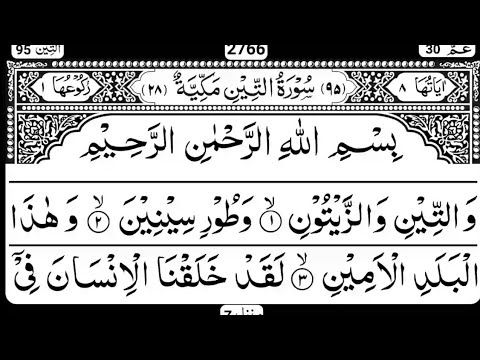 التين 95 2766 عم 30
اٰیَاتُهَا ٨ (٩٥) سُوْرَةُ التِّیْنِ مَكِّیَّةٌ (٢٨) رُكُوْعُهَا ١
بِسْمِ اللّٰهِ الرَّحْمٰنِ الرَّحِیْمِ
وَالتِّیْنِ وَالزَّیْتُوْنِ ۙ﴿١﴾ وَطُوْرِ سِیْنِیْنَ ۙ﴿٢﴾ وَهٰذَا
الْبَلَدِ الْاَمِیْنِ ۙ﴿٣﴾ لَقَدْ خَلَقْنَا الْاِنْسَانَ فِیْۤ
منزل 7